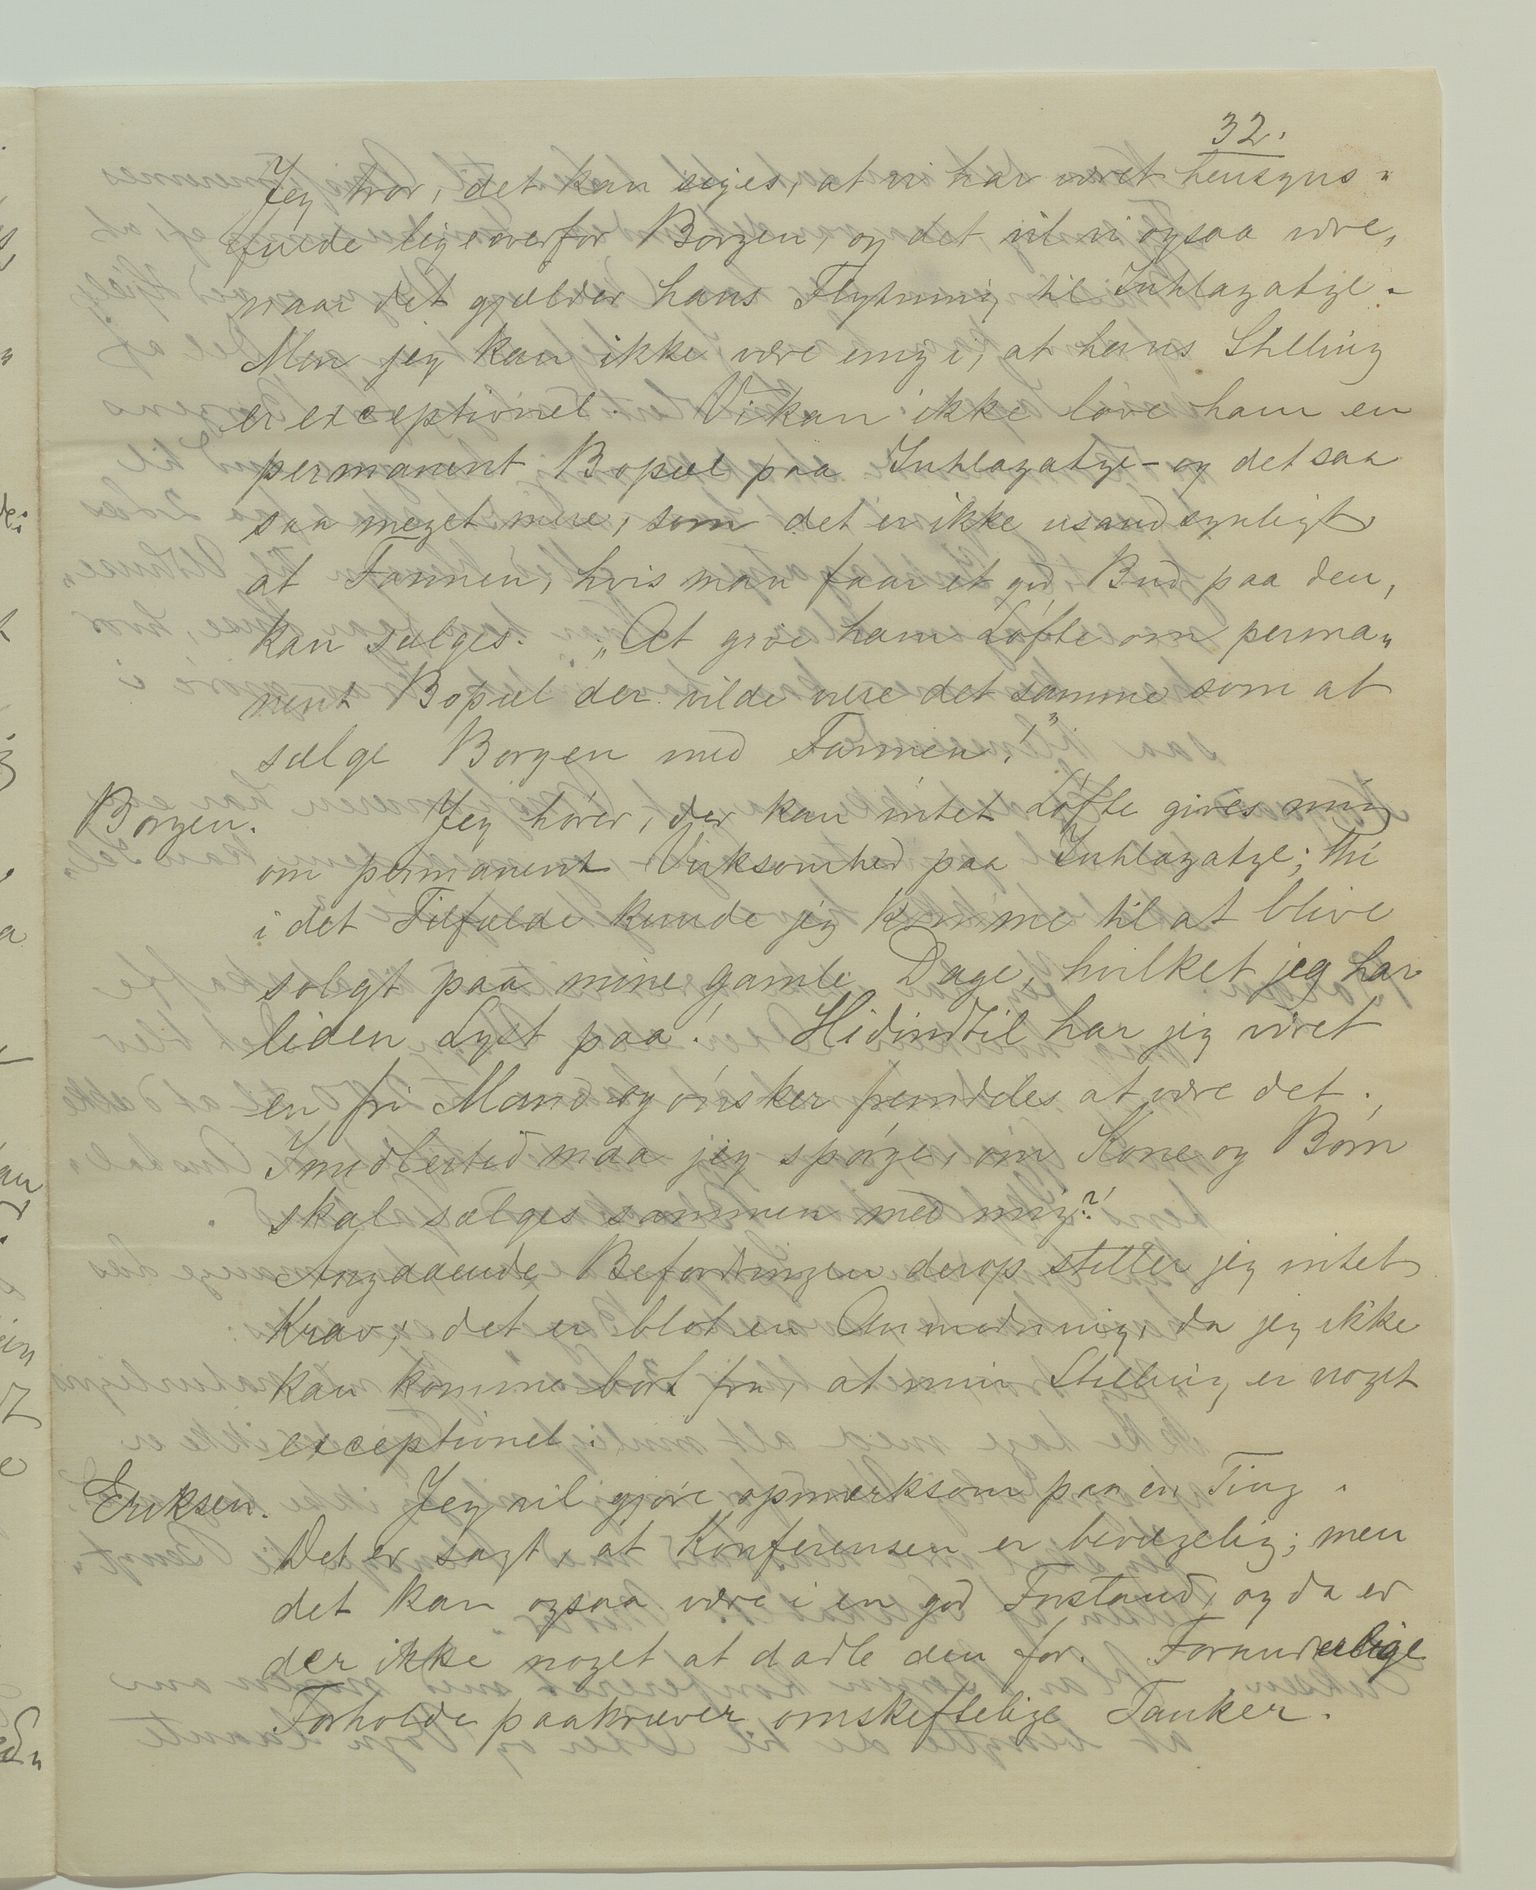 32.
Jeg tror, det kan siges, at vi har været hensyns-
fulde ligeoverfor Borgen, og det vil vi ogsaa være,
naar det gjælder hans Flytning til Inhlazatze.
Men jeg kan ikke være enig i, at hans Stilling
er exceptionel. Vi kan ikke love ham en
permanent Bopæl paa Inhlazatze - og det saa
saa meget mere, som det er ikke usandsynligt
at Farmen, hvis man faar et god Bud paa den,
kan sælges. "At give ham Løfte om perma-
nent Bopæl der vilde være det samme som at
sælge Borgen med Farmen."
Borgen. Jeg hører, der kan intet Løfte gives mig
om permanent Virksomhed paa Inhlazatze; Thi
i det Tilfælde kunde jeg komme til at blive
solgt paa mine gamle Dage, hvilket jeg har
liden Lyst paa! Hidindtil har jeg været
en fri Mand og ønsker fremdeles at være det.
Imidlertid maa jeg spørge, om Kone og Børn
skal sælges sammen med mig?!
Angaaende Befordringen derop stiller jeg intet
Krav, det er blot en Anmodning, da jeg ikke
kan komme bort fra, at min Stilling er noget
exceptionel.
Eriksen. Jeg vil gjøre opmærksom paa en Ting.
Det er sagt, at Konferensen er bevægelig; men
det kan ogsaa være i en god Forstand, og da er
der ikke noget at dadle den for. Foranderlige
Forholde paakræver omskiftelige Tanker.